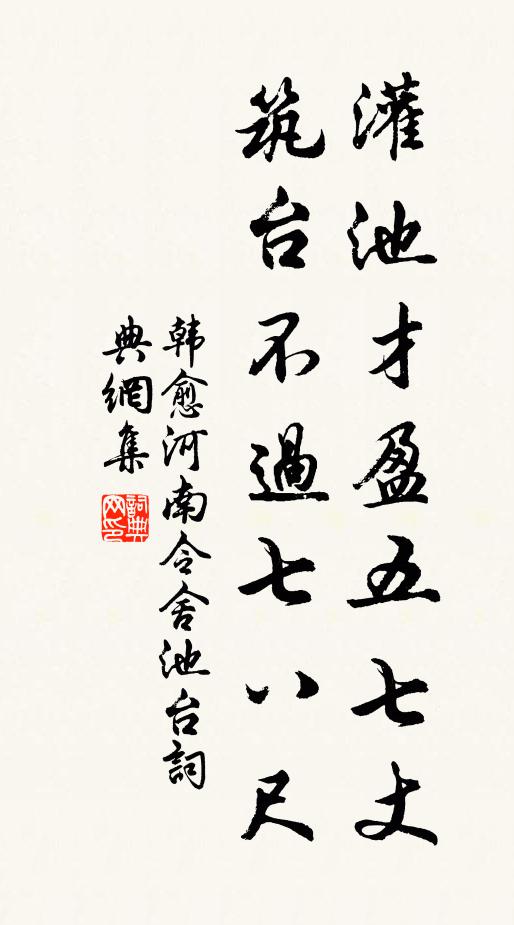 灌池才盈五七丈
筑台不過七八尺
韩愈河南令舍池台詞
典網集
詞典網印